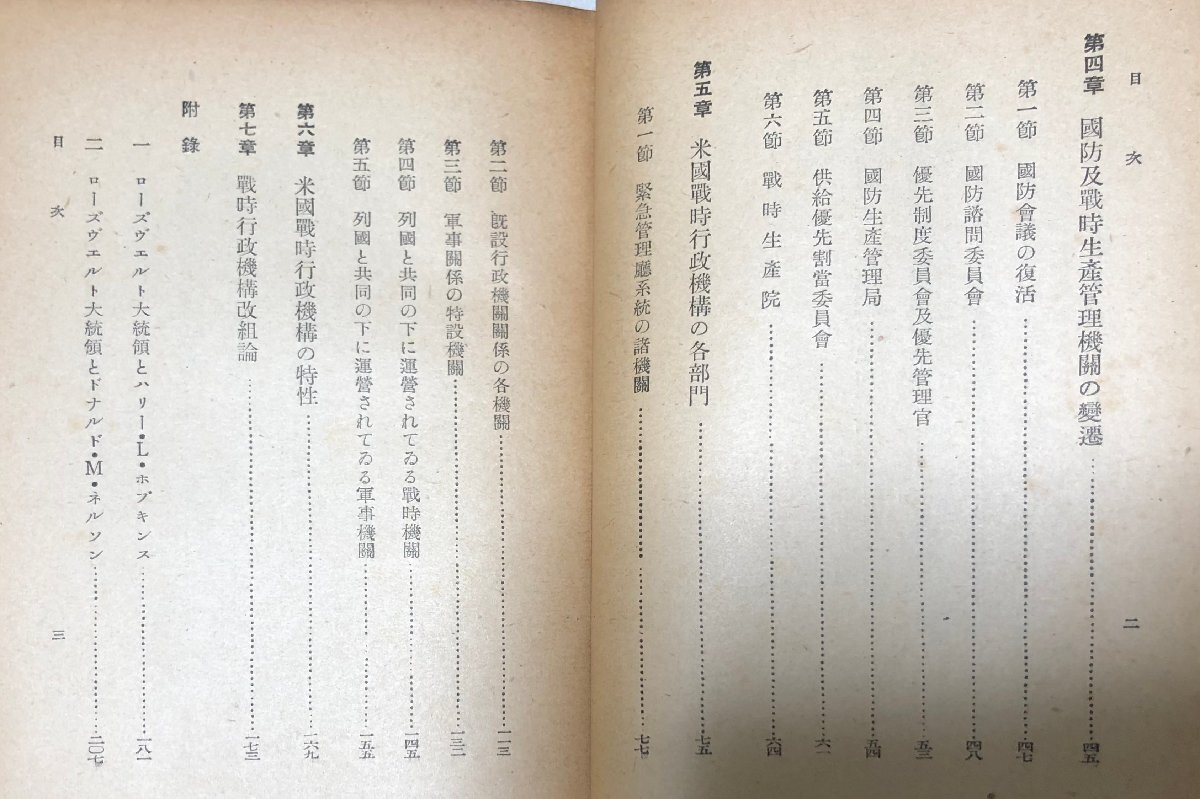 目次
二
第四章　國防及戰時生產管理機關の變遷……四五
第一節　國防會議の復活……四七
第二節　國防諮問委員會……四八
第三節　優先制度委員會及優先管理官……五三
第四節　國防生產管理局……五四
第五節　供給優先割當委員會……六一
第六節　戰時生產院……六四
第五章　米國戰時行政機構の各部門……七五
第一節　緊急管理廳系統の諸機關……七七
第二節　既設行政機關關係の各機關……一一三
第三節　軍事關係の特設機關……一三二
第四節　列國と共同の下に運營されてゐる戰時機關……一四五
第五節　列國と共同の下に運營されてゐる軍事機關……一五五
第六章　米國戰時行政機構の特性……一六九
第七章　戰時行政機構改組論……一七三
附錄
一　ローズヴエルト大統領とハリー・L・ホプキンス……一八一
二　ローズヴエルト大統領とドナルド・M・ネルソン……二〇七
目次
三